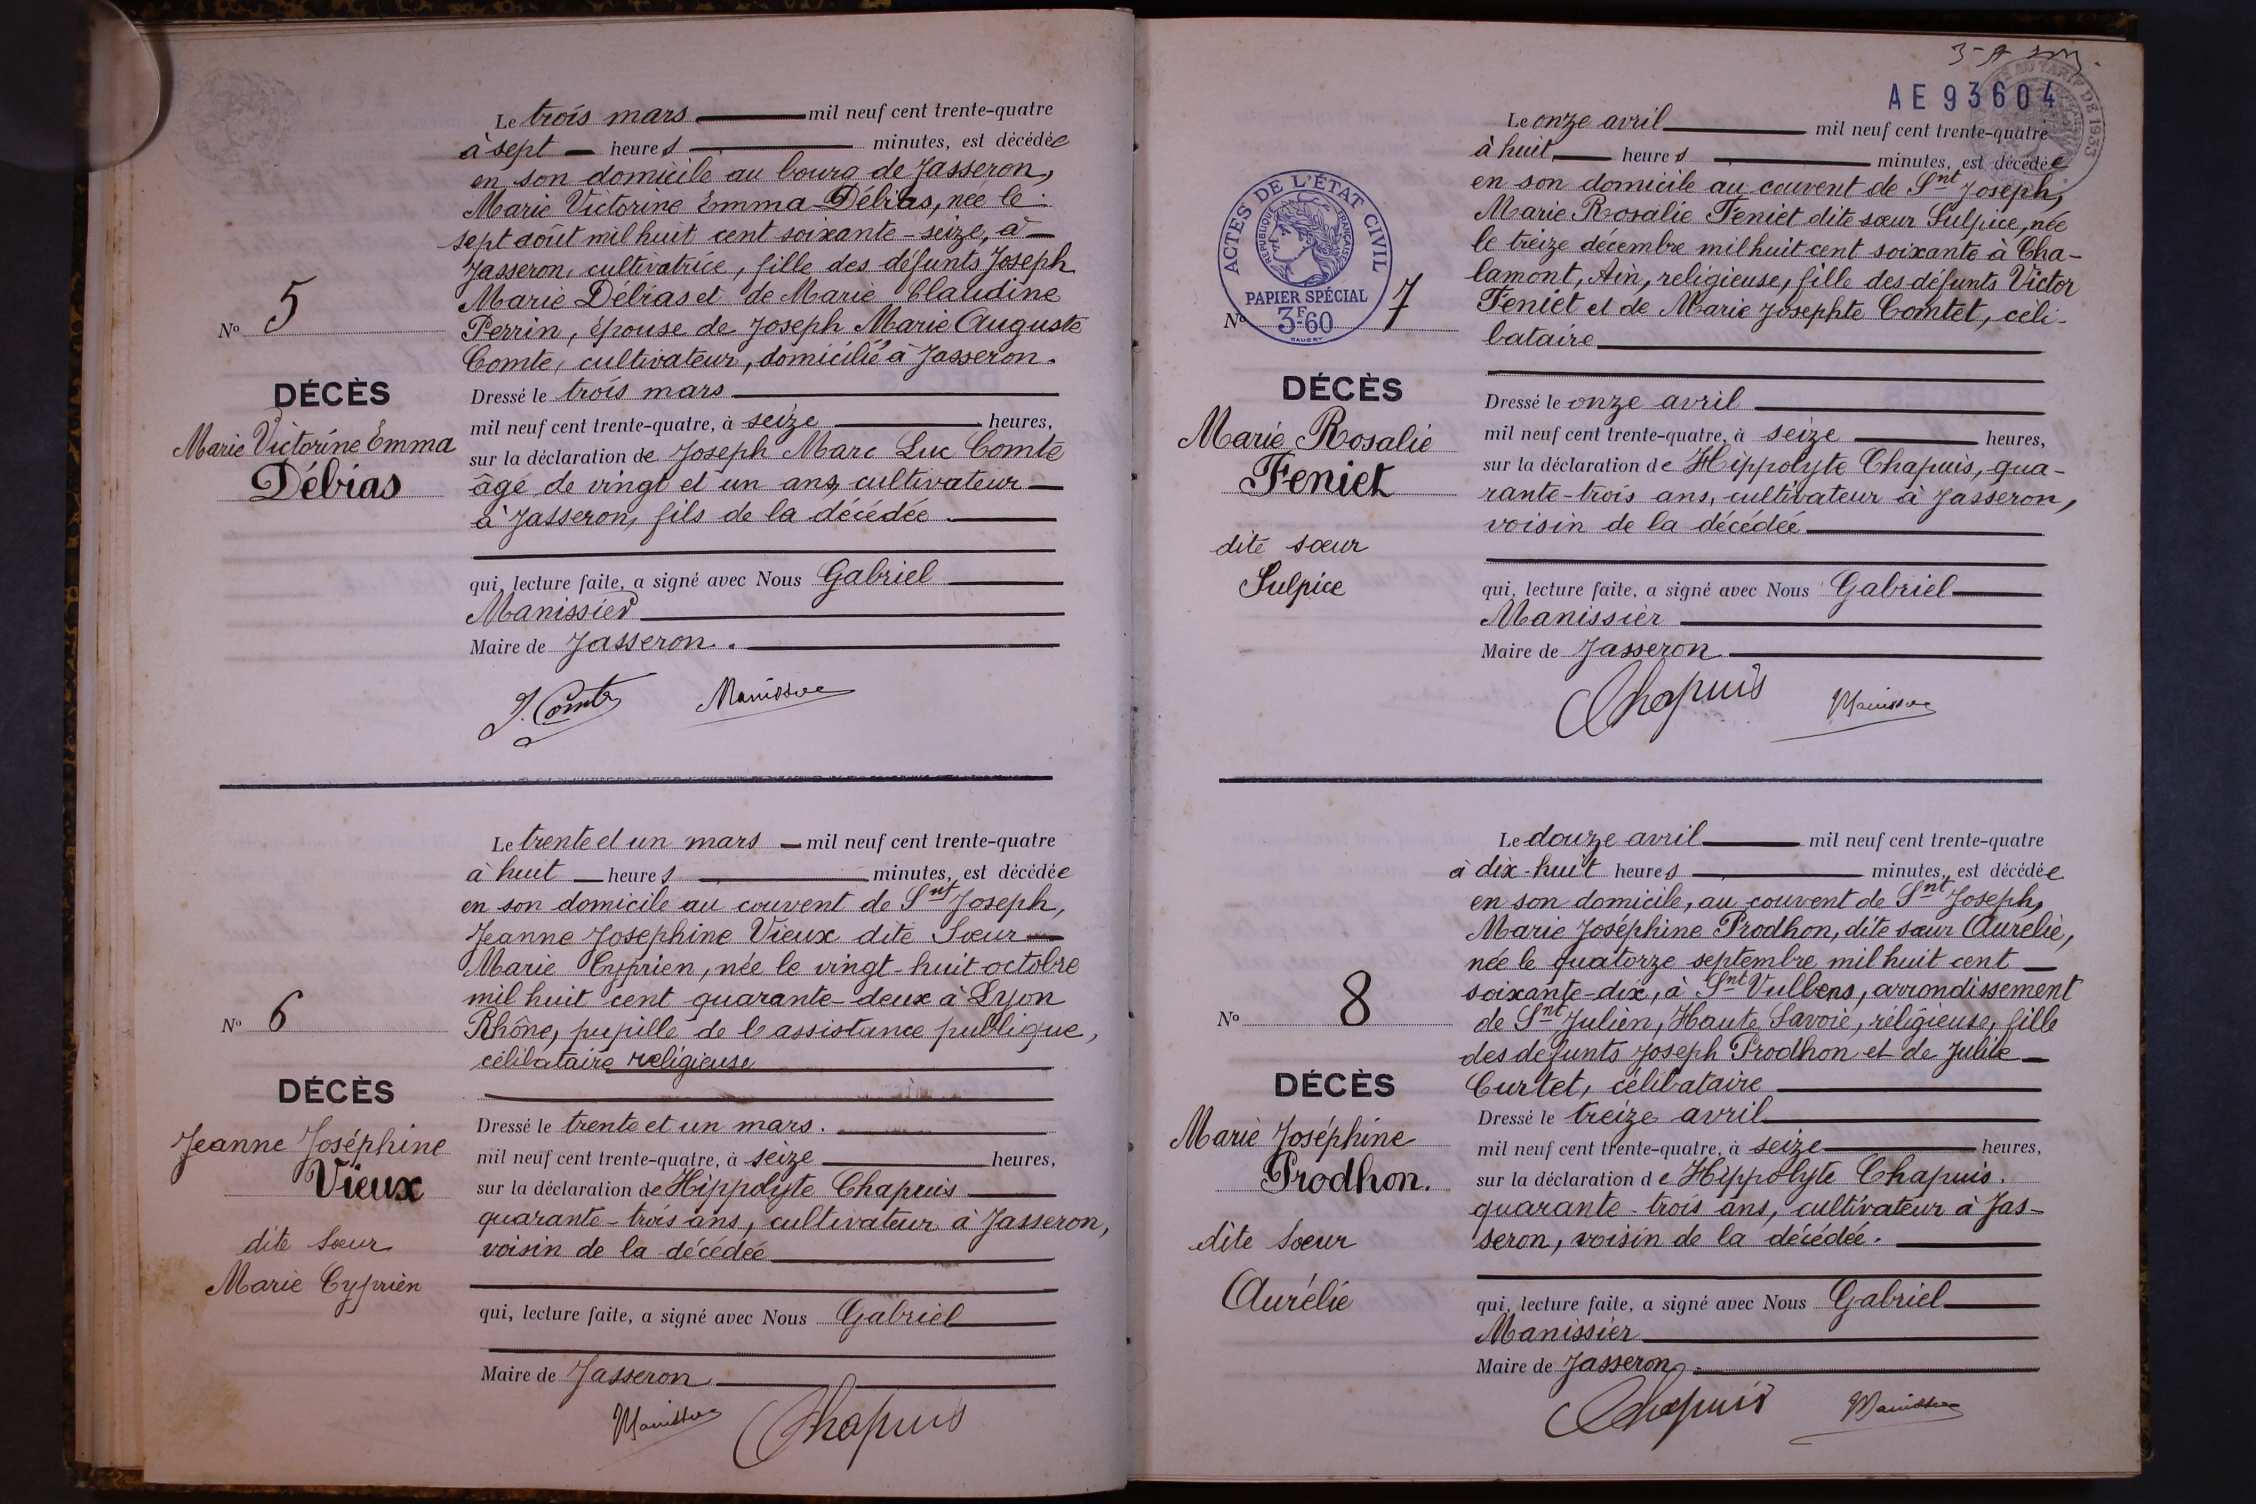 Le trois mars mil neuf cent trente-quatre
à sept heures minutes, est décédée
en son domicile au bourg de Jasseron,
Marie Victorine Emma Débias, née le
sept août mil huit cent soixante-seize, à
Jasseron, cultivatrice, fille des défunts Joseph
Marie Débias et de Marie Claudine
Perrin, épouse de Joseph Marie Auguste
Comte, cultivateur, domicilié à Jasseron.
Nº 5
DÉCÈS
Marie Victorine Emma
Débias
Dressé le trois mars
mil neuf cent trente-quatre, à seize heures,
sur la déclaration de Joseph Marc Luc Comte
âgé de vingt et un ans, cultivateur
à Jasseron, fils de la décédée.
qui, lecture faite, a signé avec Nous Gabriel
Manissier
Maire de Jasseron.
J. Comte
Le trente et un mars mil neuf cent trente-quatre
à huit heures minutes, est décédée
en son domicile au couvent de Snt Joseph,
Jeanne Josephine Vieux dite Sœur
Marie Cyprien, née le vingt-huit octobre
mil huit cent quarante-deux à Lyon
Rhône, pupille de l'assistance publique,
célibataire religieuse
Nº 6
DÉCÈS
Jeanne Joséphine
Vieux
dite Sœur
Marie Cyprien
Dressé le trente et un mars.
mil neuf cent trente-quatre, à seize heures,
sur la déclaration de Hippolyte Chapuis
quarante-trois ans, cultivateur à Jasseron,
voisin de la décédée
qui, lecture faite, a signé avec Nous Gabriel
Maire de Jasseron
Chapuis
AE 93604
TARIF DE 1933
Le onze avril mil neuf cent trente-quatre
à huit heures minutes, est décédée
en son domicile au couvent de Snt Joseph,
Marie Rosalie Feniet dite sœur Sulpice, née
le treize décembre mil huit cent soixante à Cha-
lamont, Ain, religieuse, fille des défunts Victor
Feniet et de Marie Josephte Comtet, céli-
bataire
ACTES DE L'ÉTAT CIVIL
RÉPUBLIQUE FRANÇAISE
PAPIER SPÉCIAL
3F.60
Nº 7
DÉCÈS
Marie Rosalie
Feniet
dite sœur
Sulpice
Dressé le onze avril
mil neuf cent trente-quatre, à seize heures,
sur la déclaration de Hippolyte Chapuis, qua-
rante-trois ans, cultivateur à Jasseron,
voisin de la décédée
qui, lecture faite, a signé avec Nous Gabriel
Manissier
Maire de Jasseron
Chapuis
Le douze avril mil neuf cent trente-quatre
à dix-huit heures minutes, est décédée
en son domicile, au couvent de Snt Joseph,
Marie Joséphine Prodhon, dite sœur Aurélie,
née le quatorze septembre mil huit cent
soixante-dix, à Snt Vulbens, arrondissement
de Snt Julien, Haute Savoie, religieuse, fille
des defunts Joseph Prodhon et de Julie
Curtet, célibataire
Nº 8
DÉCÈS
Marie Joséphine
Prodhon.
dite Sœur
Aurélie
Dressé le treize avril
mil neuf cent trente-quatre, à seize heures,
sur la déclaration de Hippolyte Chapuis.
quarante-trois ans, cultivateur à Jas-
seron, voisin de la décédée.
qui, lecture faite, a signé avec Nous Gabriel
Manissier
Maire de Jasseron.
Chapuis